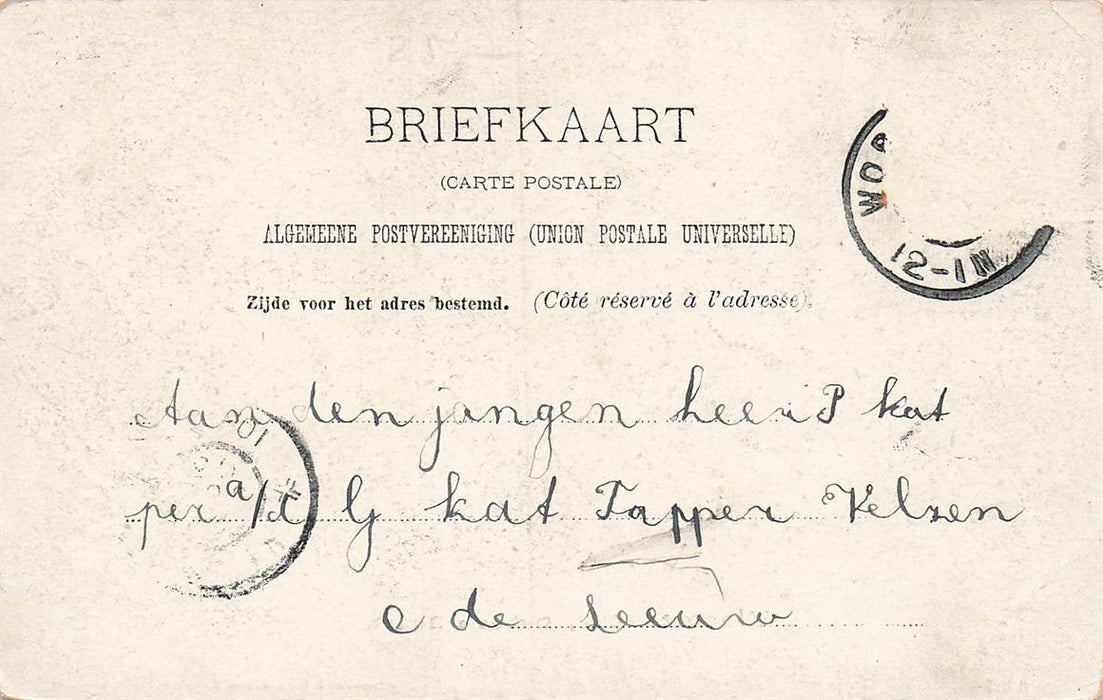 BRIEFKAART
(CARTE POSTALE)
ALGEMEENE POSTVEREENIGING (UNION POSTALE UNIVERSELLE)
Zijde voor het adres bestemd. (Côté réservé à l'adresse).
WOR
12-1N
Aan den jongen heer P kat
per a/d G kat Tapper Velzen
C de Leeuw